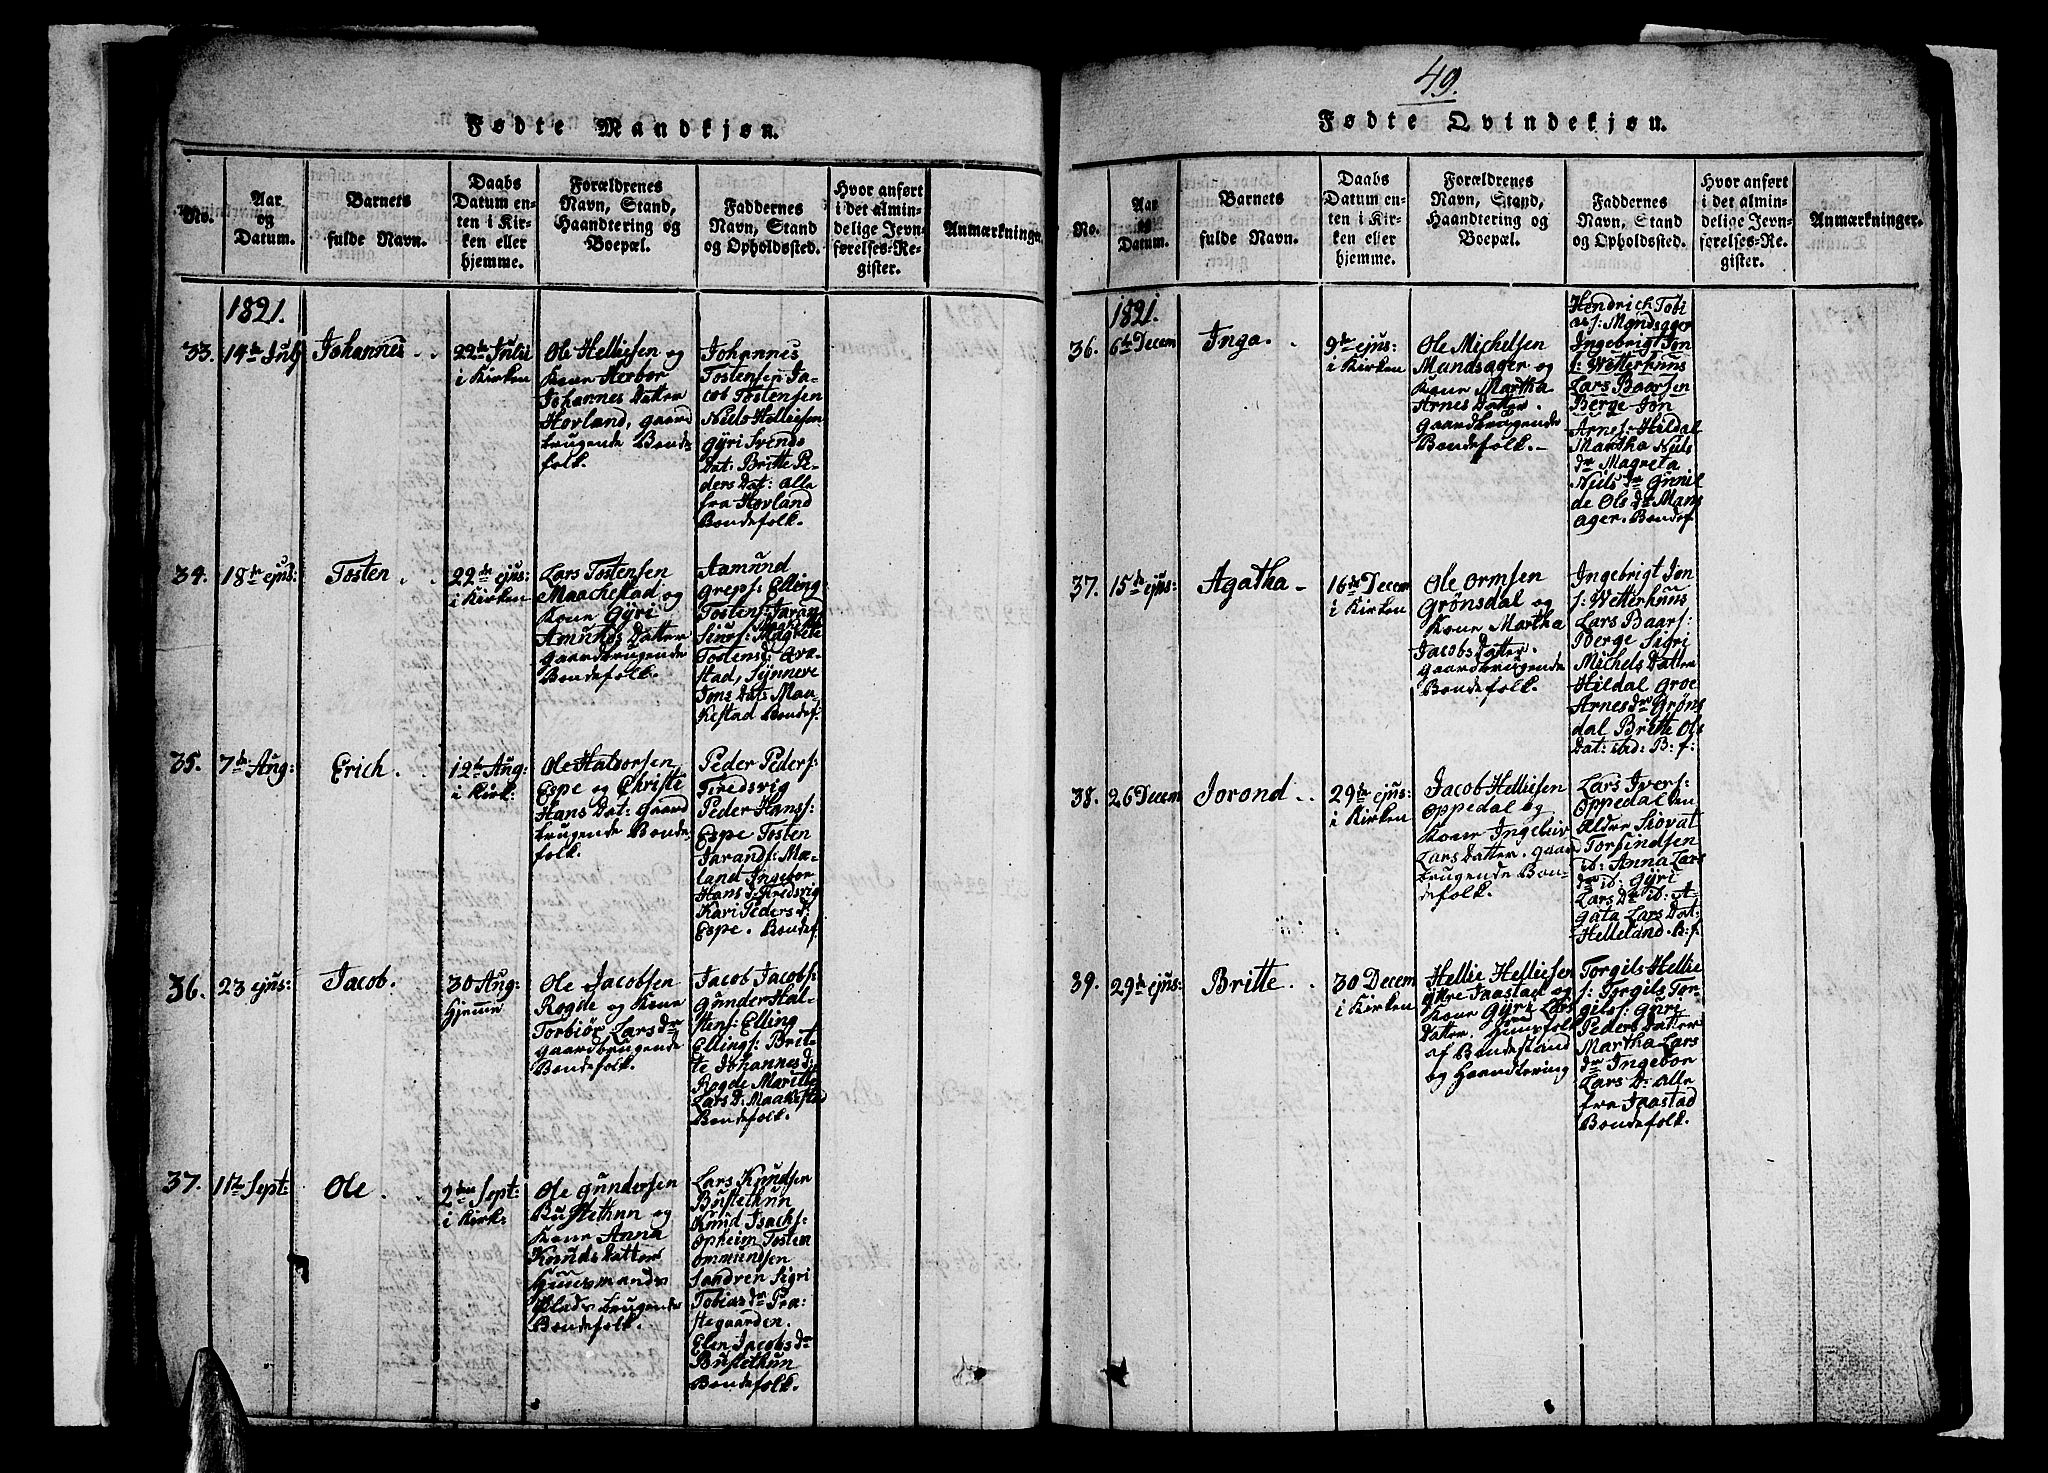 49.
Fødte Mandkjøn.
No.
Aar
og
Datum.
Barnets
fulde Navn.
Daabs
Datum en-
ten i Kir-
ken eller
hjemme.
Forældrenes
Navn, Stand,
Haandtering og
Boepæl.
Faddernes
Navn, Stand
og Opholdssted.
Hvor anført
i det almin-
delige Jevn-
førelses-Re-
gister.
Anmærkninger
1821.
33.
14de July
Johannes
22de Julii
i Kirken
Ole Helliesen og
Kone Herbor
Johannes Datter
Hovland, gaard
brugende Bonde
folk.
Johannes
Tostensen Ja-
cob Tostensen
Niels Helliesen
Gÿri Svends
Dat: Britte Pe-
ders Dat: alle
fra Hovland
Bondefolk.
34.
18de ejus:
Tosten
22de ejus:
i Kirken
Lars Tostensen
Maachestad og
Kone Gÿri
Amunds Datter
gaardbrugende
Bondefolk.
Aamund
Greps: Elling
Tostens: Jaran
Siurs: Magrete
Tostensd:
stad, Sÿnneve
Jons Dat: Maa
kestad Bondef:
35.
7de Aug:
Erich.
12te Aug:
i Kirk:
Ole Halvorsen
Espe og Christi
Hans Dat: gaard
brugende Bonde
folk.
Peder Peders:
Tredsvig
Peder Hans:
Espe Tosten
Jarands: Ma-
land Ingebor
Hans d: Tredsvig
Kari Peders d:
Espe. Bondef:
36.
23 ejus:
Jacob.
30 Aug:
Hjemme
Ole Jacobsen
Rogde og Kone
Torbiør Lars dr
gaardbrugende
Bondefolk.
Jacob Jacobs:
Gunder Hal-
stens: Elling
Ellings: Brit-
te Johannes d:
Rogde Maritte
Lars D: Maakestad
Bondefolk.
37.
1te Sept:
Ole
2den Sept:
i Kirk:
Ole Gundersen
Bustethun og
Kone Anna
Knuds Datter
Huusmands
Plads brugende
Bondefolk.
Lars Knudsen
Bustethun
Knud Isachs:
Opheim Tosten
Ommundsen
Sandven Sigri
Tobias dr Præ-
stegaarden.
Elen Jacobs dr
Bustethun
Bondefolk.
Fødte Qvindekjøn.
No.
Aar
og
Datum.
Barnets
fulde Navn.
Daabs
Datum en-
ten i Kir-
ken eller
hjemme.
Forældrenes
Navn, Stand,
Haandtering og
Boepæl.
Faddernes
Navn, Stand
og Opholdssted.
Hvor anført
i det almin-
delige Jevn-
førelses-Re-
gister.
Anmærkninger.
1821.
36.
6te Decem
Inga.
9de ejus:
i Kirken
Ole Michelsen
Mundsager og
Kone Martha
Arnes Datter.
gaardbrugende
Bondefolk.
Hendrich Tobi
as s: Mondsager
Ingebrigt Jon
s: Wetterhuus
Lars Baarsen
Berge Jon
Arnes: Hildal
Martha Niels
dr Magreta
Niels dr Gunil
de Ols dr Mans
ager. Bondef.
37.
15de ejus:
Agatha
16de Decem
i Kirken
Ole Ormsen
Grønsdal og
Kone Martha
Jacobs Datter.
gaardbrugende
Bondefolk.
Ingebrigt Jon
s: Wetterhuus
Lars Baars:
Berge Sigri
Michels Datter
Hildal Groe
Arnes dr Grøns
dal Britte Ols
Dat: ibid: B: f:
38.
26 Decem
Jorond
29de ejus:
i Kirken
Jacob Helliesen
Oppedal og
Kone Ingebor
Lars Datter. gaard
brugende Bon-
defolk.
Lars Ivers:
Oppedal den
Ældre Siovat
Torfindsen
ib: Anna Lars
dr ib: Gÿri
Lars Dr ib: A-
gata Lars Dat:
Helleland. B: f:
39.
29de ejus:
Britte
30 Decem
i Kirken
Hellie Helliesen
Jaastad og
Kone Gÿri Lars
Datter. Huusfolk
af Bondestand
og Haandtering
Torgils Hellie
s: Torgils Tor-
gils s: Guri
Peders Datter
Martha Lars
dr Ingebor
Lars D: alle
fra Jaastad
Bondefolk.